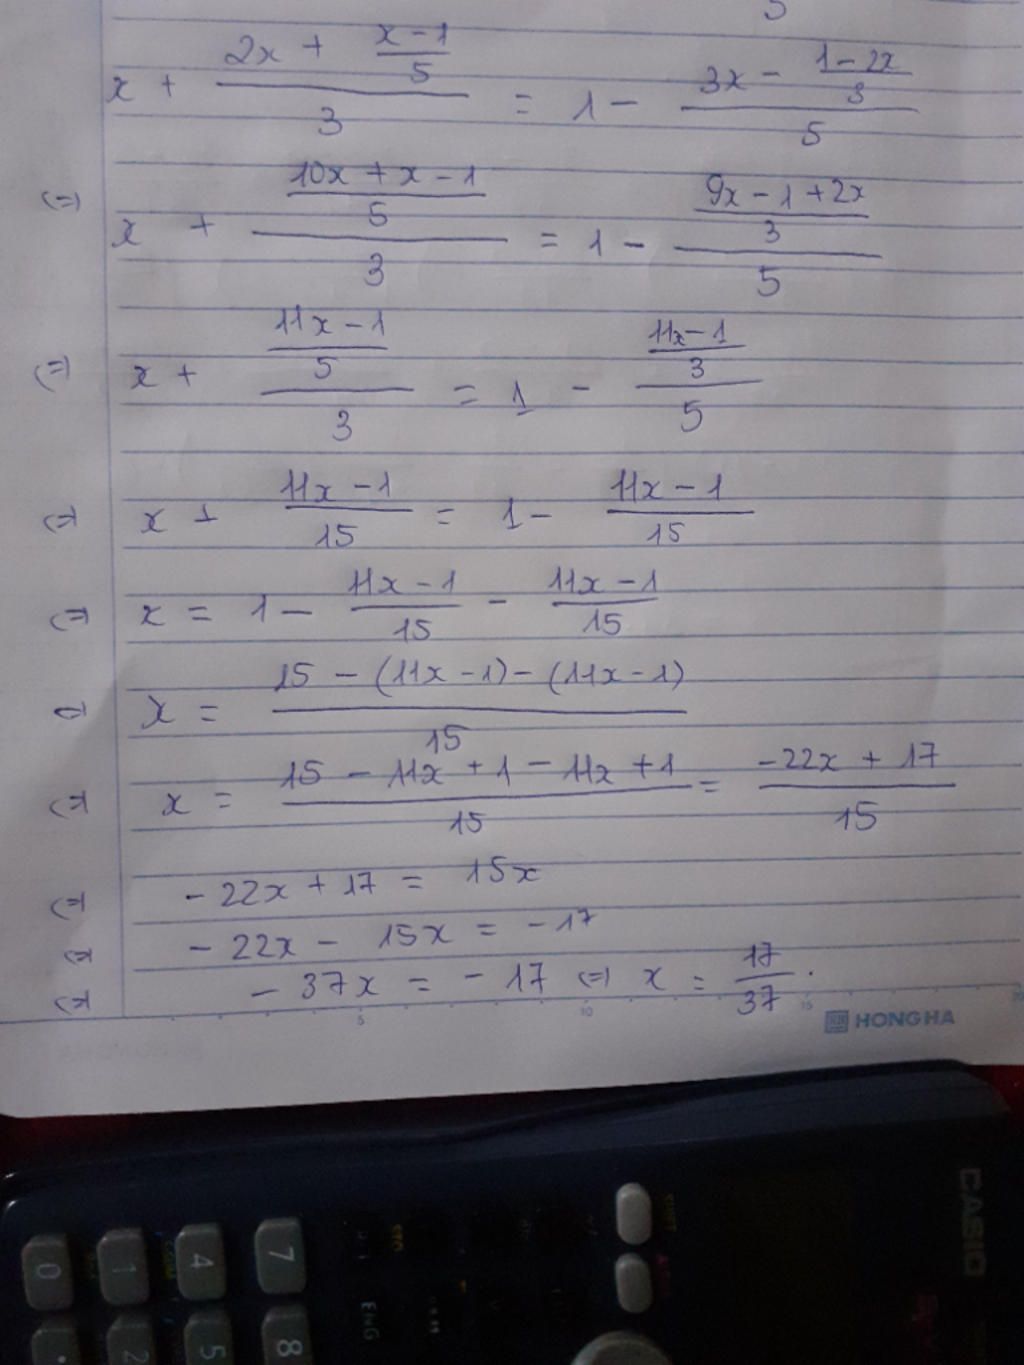 x + (2x + (x-1)/5)/3 = 1 - (3x - (1-2x)/3)/5
(=) x + ((10x + x - 1)/5)/3 = 1 - ((9x - 1 + 2x)/3)/5
(=) x + ((11x - 1)/5)/3 = 1 - ((11x - 1)/3)/5
(=) x + (11x - 1)/15 = 1 - (11x - 1)/15
(=) x = 1 - (11x - 1)/15 - (11x - 1)/15
(=) x = (15 - (11x - 1) - (11x - 1))/15
(=) x = (15 - 11x + 1 - 11x + 1)/15 = (-22x + 17)/15
(=) -22x + 17 = 15x
(=) -22x - 15x = -17
(=) -37x = -17 (=) x = 17/37.
5 10 15 20
HONG HA
CASIO
SHIFT
STO
ENG
0 1 4 7
. 2 5 8